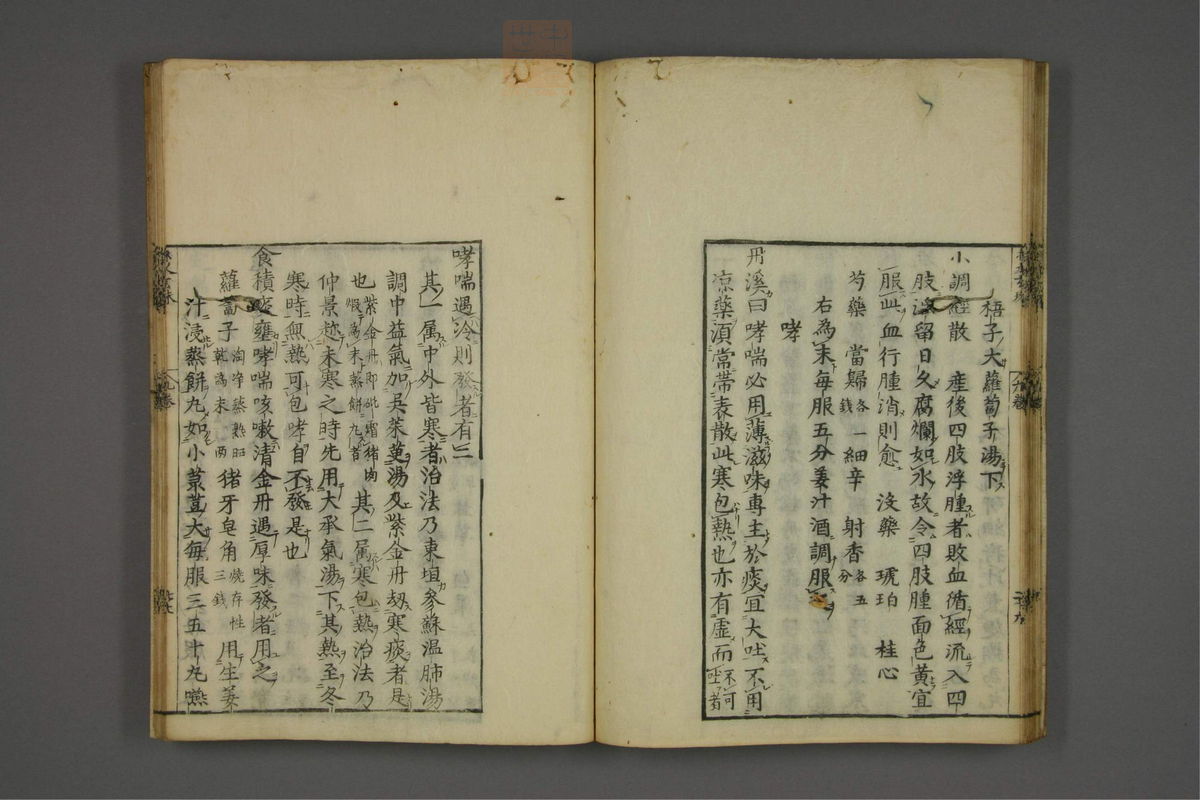 梧子大蘿蔔子湯下
小調經散　産後四肢浮腫者敗血循經流入四
肢淫留日久腐爛如水故令四肢腫面色黃宜
服此血行腫消則愈　沒藥　琥珀　桂心
芍藥　當歸各一錢　細辛　射香各五分
右為末每服五分姜汁酒調服
哮
丹溪曰哮喘必用薄滋味專主於痰宜大吐不用
凉藥須常帶表散此寒包熱也亦有虛而不可吐者
哮喘遇冷則發者有二
其一属中外皆寒者治法乃東垣參蘇溫肺湯
調中益氣加吳茱萸湯及紫金丹劫寒痰者是
也紫金丹即砒霜猪肉煆為末蒸餅丸者　其二属寒包熱治法乃
仲景越未寒之時先用大承氣湯下其熱至冬
寒時無熱可包哮自不發是也
食積痰壅哮喘咳嗽清金丹遇厚味發者用之
蘿蔔子淘净蒸熟晒乾為末一两　猪牙皂角燒存性三錢　用生姜
汁浸蒸餅丸如小菉荳大每服三五十丸嚥